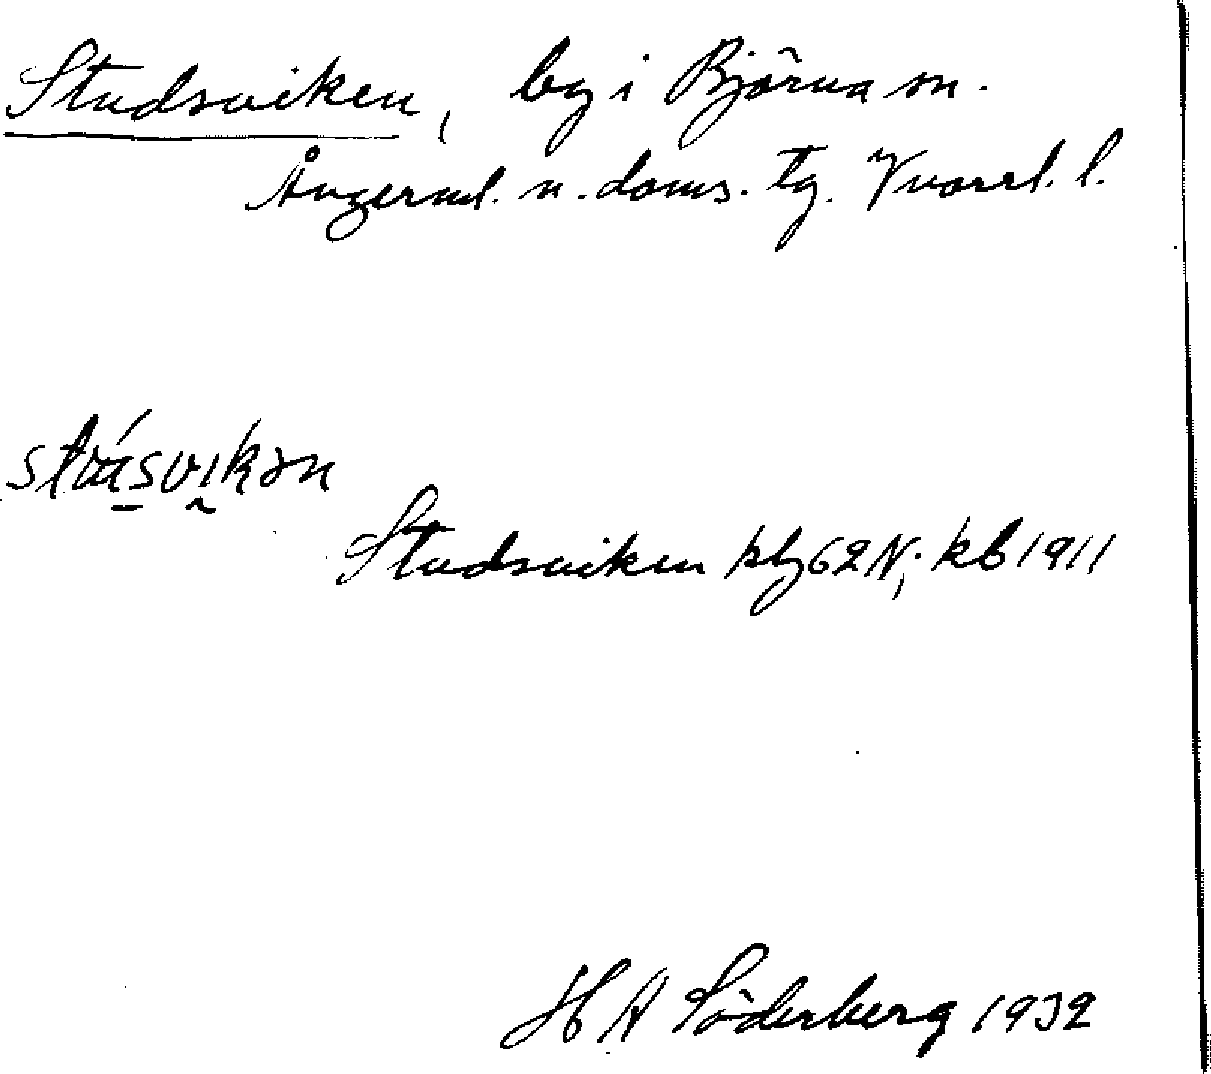 Studsviken, by i Björna sn.
Ångerml. n. doms. tg. Västerbl. l.
Studsviken kbg 62 N; kb 1911
H A Söderberg 1932